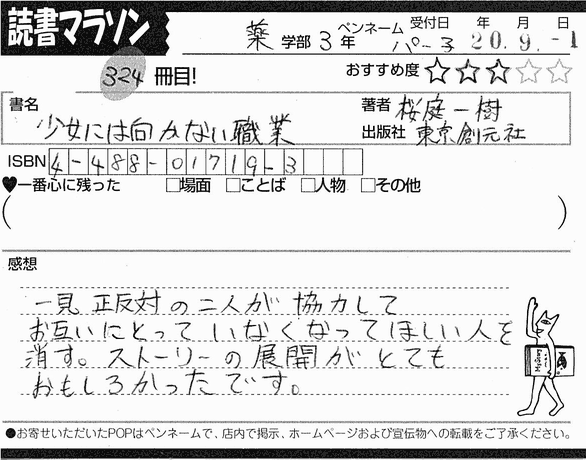 読書マラソン
薬 学部 3 年 ペンネーム パー子 受付日 年 月 日 20.9.-1
324 冊目! おすすめ度 ☆☆☆☆☆
書名 少女には向かない職業
著者 桜庭一樹
出版社 東京創元社
ISBN 4-488-01719-3
♥一番心に残った □場面 □ことば □人物 □その他
( )
感想
一見 正反対の二人が 協力して
お互いにとって いなくなってほしい人を
消す。ストーリーの展開がとても
おもしろかったです。
●お寄せいただいたPOPはペンネームで、店内で掲示、ホームページおよび宣伝物への転載をご了承ください。